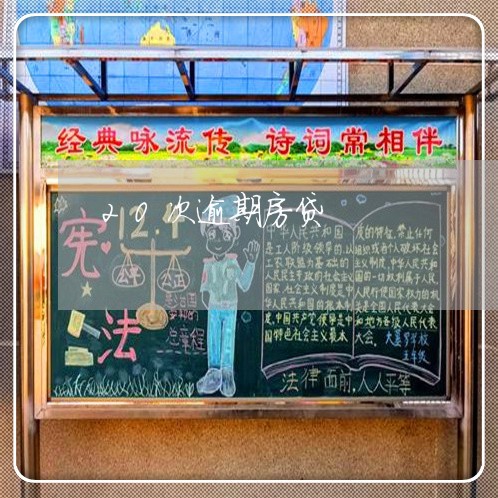 经典咏流传 诗词常相伴
20次逾期房贷
宪法
12.4
公平 公正
总章程
中华人民共和国
是工人阶级领导的,以
工农联盟为基础的
人民民主专政的社会主义
国家,社会主义制度是中
华人民共和国的根本制
度,中国共产党领导是中
国特色社会主义最本
质的特征,禁止任何
组织或者个人破坏社会
主义制度,中华人民共和
国的一切权利属于人民,
人民行使国家权力的机
关是全国人民代表大会
和地方各级人民代表
大会。
五年级
法律面前,人人平等